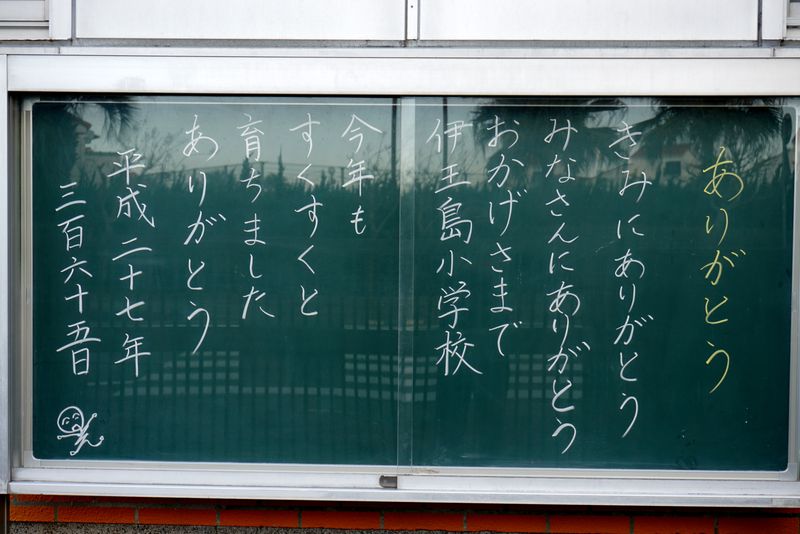 ありがとう
きみにありがとう
みなさんにありがとう
おかげさまで
伊王島小学校
今年も
すくすくと
育ちました
ありがとう
平成二十七年
三百六十五日